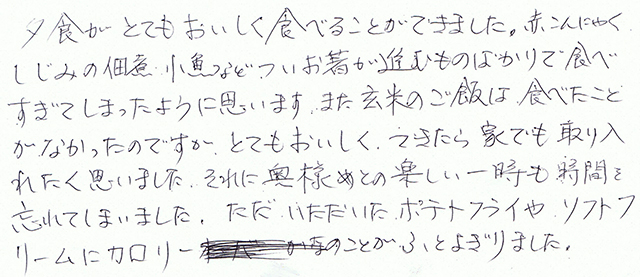 夕食がとてもおいしく食べることができました。赤こんにゃく
しじみの佃煮 小魚など、ついお箸が進むものばかりで食べ
すぎてしまったように思います。また玄米のご飯は、食べたこと
がなかったのですが、とてもおいしく、できたら家でも取り入
れたく思いました。それに奥様めとの楽しい一時も時間を
忘れてしまいました。ただ、いただいた、ポテトフライや、ソフトフ
リームにカロリーのことがふとよぎりました。